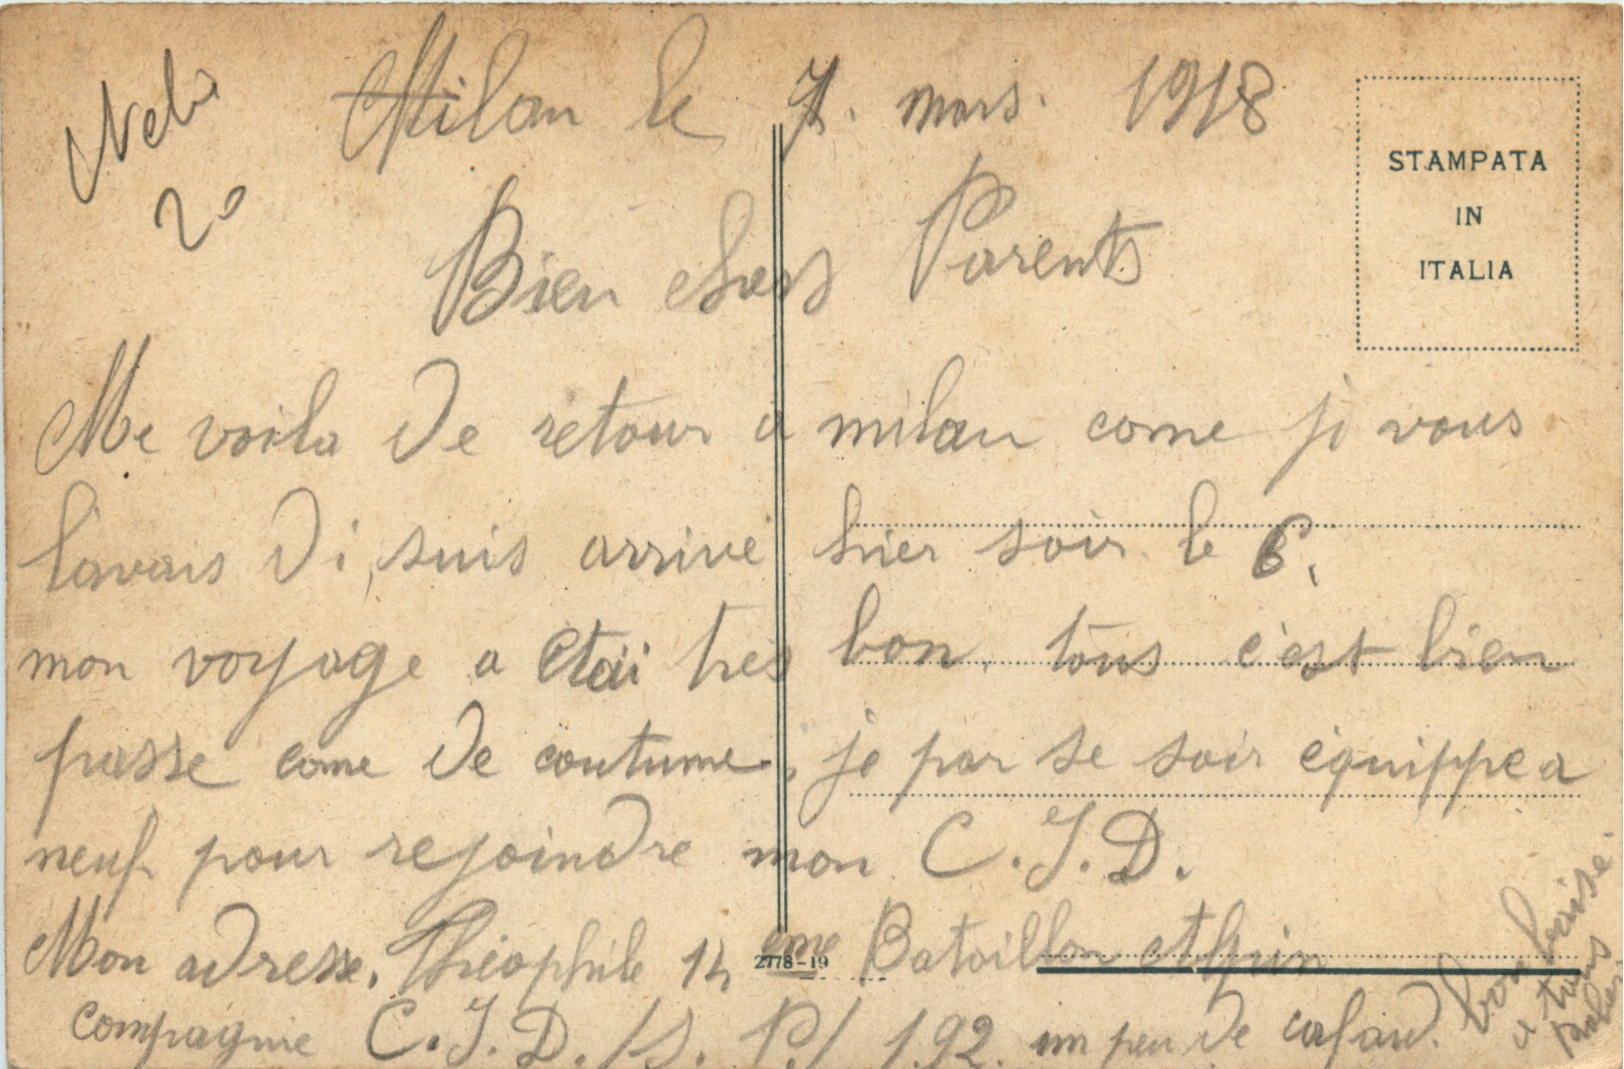 Milan le 7. mars. 1918
20
STAMPATA
IN
ITALIA
Bien chers Parents
Me voila de retour a milan come je vous
lavais di, suis arrivé hier soir le 6.
mon voyage a étai tres bon. tous c'est bien
passe come de coutume, je par se soir équippe a
neuf pour rejoindre mon C.I.D.
Mon adresse. Théophile 14 eme Bataillon Alpin
2778-19
compagnie C.I.D. /S. P./ 192. un peu de cafard.
bon baise
a tous